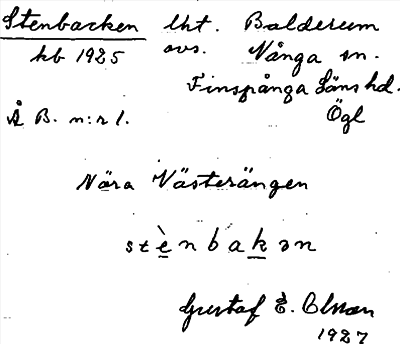 Stenbacken lht. Balderum
kb 1925 avs. Vånga sn.
Finspånga Läns hd.
Å B. n:r 1. Ögl
Nära Västerängen
stènbakən
Gustaf E. Olsson
1927